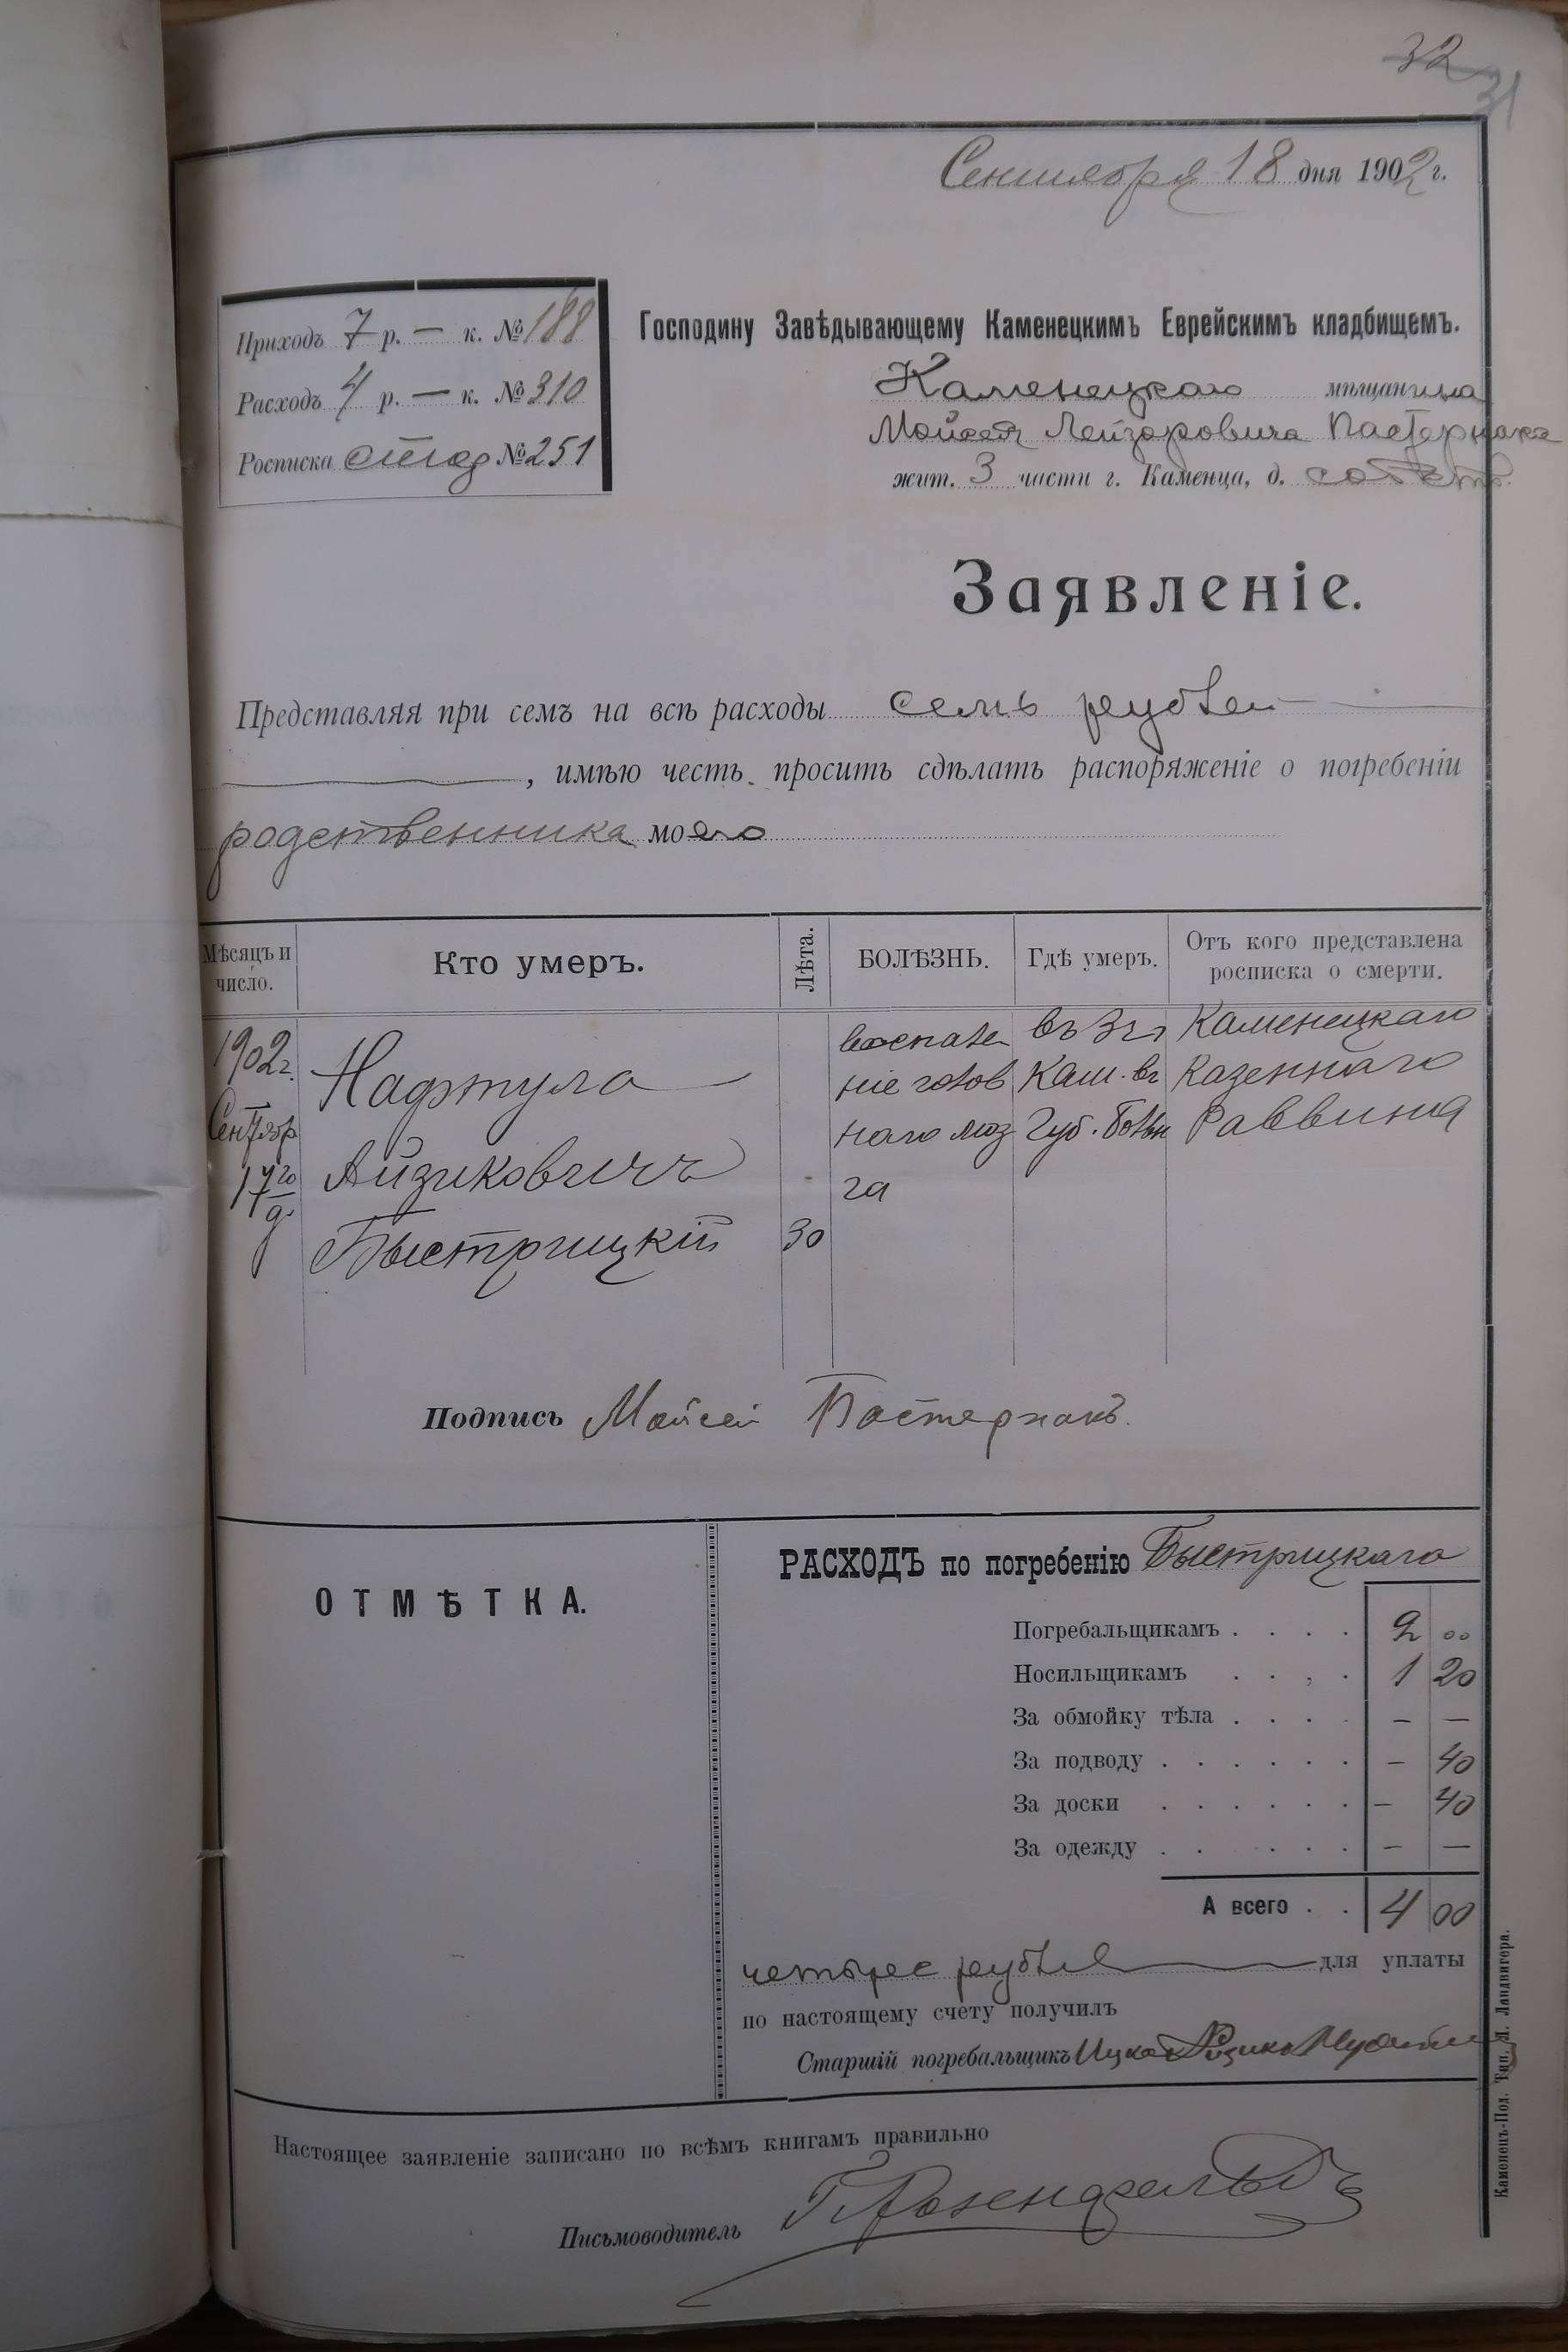 32
31
Сентября 18 дня 1902 г.
Приходъ 7 р. — к. № 188
Расходъ 4 р. — к. № 310
Росписка № 251
Господину Завѣдывающему Каменецкимъ Еврейскимъ кладбищемъ.
Каменецкаго мѣщанина
Мойсея Лейзоровича Пастернака
жит. 3 части г. Каменца, д. собств.
Заявленіе.
Представляя при семъ на всѣ расходы семь рублей —
—, имѣю честь просить сдѣлать распоряженіе о погребеніи
родственника моего
Мѣсяцъ и число. Кто умеръ. Лѣта. БОЛѢЗНЬ. Гдѣ умеръ. Отъ кого представлена росписка о смерти.
1902 г. Нафтула воспале въ 3 ч Каменецкаго
Сентябр ніе голов Кам. вг Казеннаго
17го Айзиковичъ наго моз Губ. Больн Раввина
д. га
Быстрицкій 30
Подпись Мойсей Пастернакъ.
ОТМѢТКА.
РАСХОДЪ по погребенію Быстрицкаго
Погребальщикамъ . . . . 2 00
Носильщикамъ . . , . 1 20
За обмойку тѣла . . . . — —
За подводу . . . . . . — 40
За доски . . . . . . — 40
За одежду . . . . . . — —
А всего . . 4 00
четыре рубля — для уплаты
по настоящему счету получилъ
Старшій погребальщикъ Ицко Айзикъ
Настоящее заявленіе записано по всѣмъ книгамъ правильно
Письмоводитель Г. Розенфельдъ
Каменецъ-Под. Тип. Я. Ландвигера.